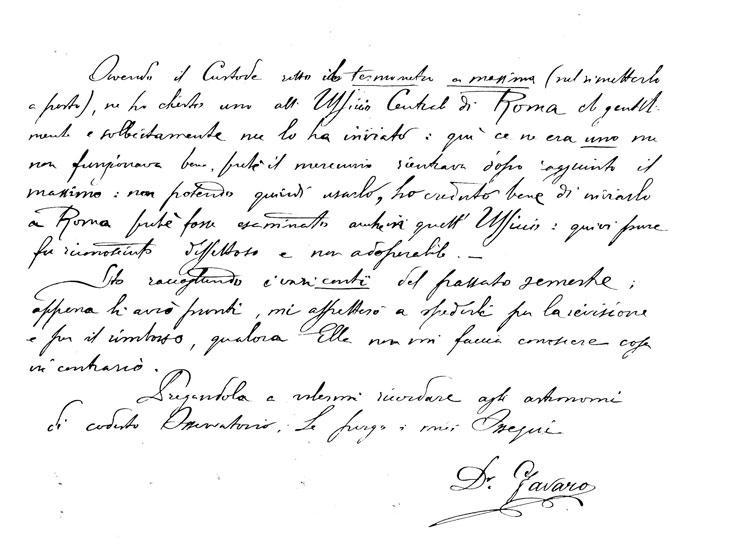 Avendo il Custode rotto il termometro a massima (nel rimetterlo
a posto), ne ho chiesto uno all' Ufficio Central di Roma che gentil-
mente e sollecitamente me lo ha inviato: qui ce ne era uno ma
non funzionava bene, perchè il mercurio rientrava dopo raggiunto il
massimo: non potendo quindi usarlo, ho creduto bene di inviarlo
a Roma perchè fosse esaminato anche in quell' Ufficio: quivi pure
fu riconosciuto difettoso e non adoperabile. —
Sto raccogliendo i vari conti del passato semestre;
appena li avrò pronti, mi affretterò a spedirli per la revisione
e per il rimborso, qualora Ella non mi faccia conoscere cosa
in contrario.
Pregandola a volermi ricordare agli astronomi
di codesto Osservatorio, Le porgo i miei Ossequi
Dr.